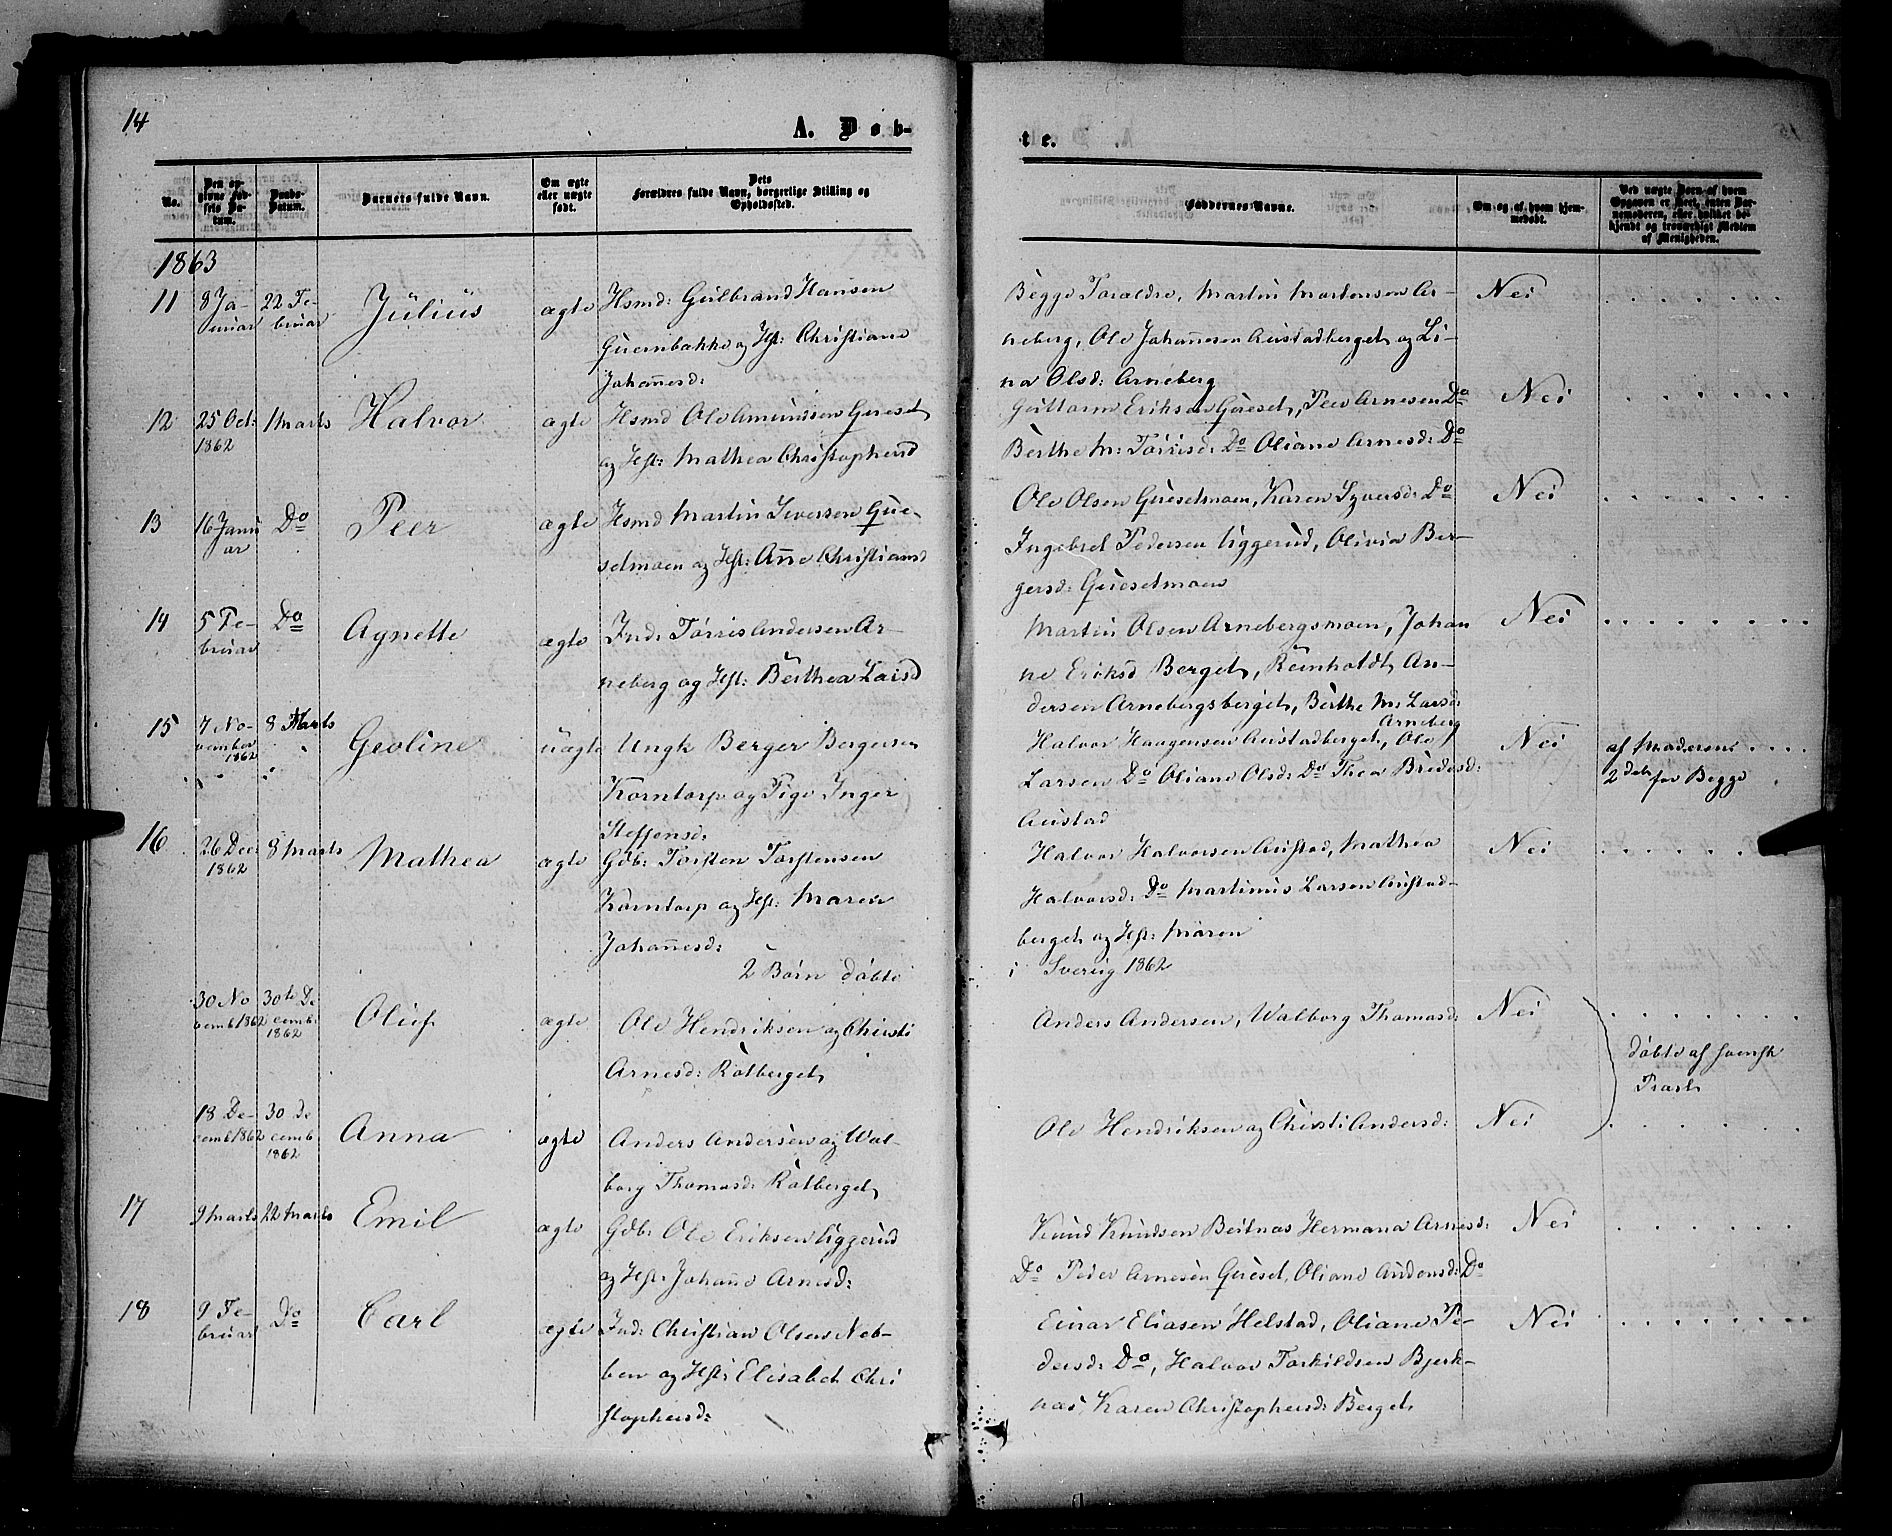 14
A. Døb-
te.
No.
Den op-
givne Fød-
sels Da-
tum.
Daabs-
Datum.
Barnets fulde Navn.
Om ægte
eller uægte
født.
Dets
Forældres fulde Navn, borgerlige Stilling og
Opholdssted.
Faddernes Navne.
Om og af hvem hjem-
medøbt.
Ved uægte Børn af hvem
Opgaven er skeet, enten Bar-
nemoderen, eller hvilket be-
kjendt og troværdigt Medlem
af Menigheden.
1863
11
8 Ja-
nuar
22 Fe-
bruar
Julius
ægte
Hsmd: Gulbrand Hansen
og Hst: Christiane
Johannesd:
Begge Forældre, Martin Mortensen Ar-
neberg, Ole Johannesen Austadberget og Li-
na Olsd: Arneberg
Nei
12
25 Oct:
1862
1 Marts
Halvor
ægte
Hsmd Ole Amundsen Gueset
og Hst: Mathea Christophersd
Guttorm Eriksen Gueset, Peer Arnesen Do
Berthe M: Torrisd: Do Oliane Arnesd: Do
Nei
13
16 Janu
ar
Do
Peer
ægte
Hsmd Martin Iversen Gue-
setmoen og Hst: Anne Christiansd
Ole Olsen Guesetmoen, Karen Syversd: Do
Ingebret Pedersen Liggerud, Olivia Ber-
gersd: Guesetmoen
Nei
14
5 Fe-
bruar
Do
Agnette
ægte
Ind: Torris Andersen Ar-
neberg og Hst: Berthea Larsd
Martin Olsen Arnebergsmoen, Johan
ne Eriksd Berget, Reinholdt An-
dersen Arnebergsberget, Berthe M: Larsd:
Arneberg
Nei
15
7 No-
vember
1862
8 Marts
Geoline
uægte
Ungk Berger Bergersen
Korntorp og Pige Inger
Steffensd:
Halvor Haagensen Austadberget, Ole
Larsen Do Oliane Olsd: Do Thea Bredesd:
Austad
Nei
af Moderen
2den for Begge
16
26 Dec:
1862
8 Marts
Mathea
ægte
Gdb: Torsten Torstensen
Korntorp og Hst: Maren
Johannesd:
Halvor Halvorsen Austad, Mathea
Halvorsd: Do Martinus Larsen Austad-
berget og Hst: Maren
Nei
2 Børn døbte
i Sverig 1862
30 No
vemb 1862
30te De
cemb:
1862
Oluf
ægte
Ole Hendriksen og Christi
Arnesd: Rotberget
Anders Andersen, Walborg Thomasd:
Nei
døbte af svensk
Præst
18 De-
cemb 1862
30 De
cemb
1862
Anna
ægte
Anders Andersen og Wal-
borg Thomasd: Rotberget
Ole Hendriksen og Christi Andersd:
Nei
17
9 Marts
22 Marts
Emil
ægte
Gdb: Ole Eriksen Liggerud
og Hst: Johane Arnesd:
Knud Knudsen Beitnæs Hermana Arnesd:
Do Peder Arnesen Gueset, Oliane Do
Nei
18
9 Fe-
bruar
Do
Carl
ægte
Ind: Christian Olsen Neb-
ben og Hst: Elisabet Chri
stophersd:
Einar Eliasen Helstad, Oliane Pe-
dersd: Do, Halvor Torkildsen Bjerk-
næs, Karen Christophersd: Berget
Nei